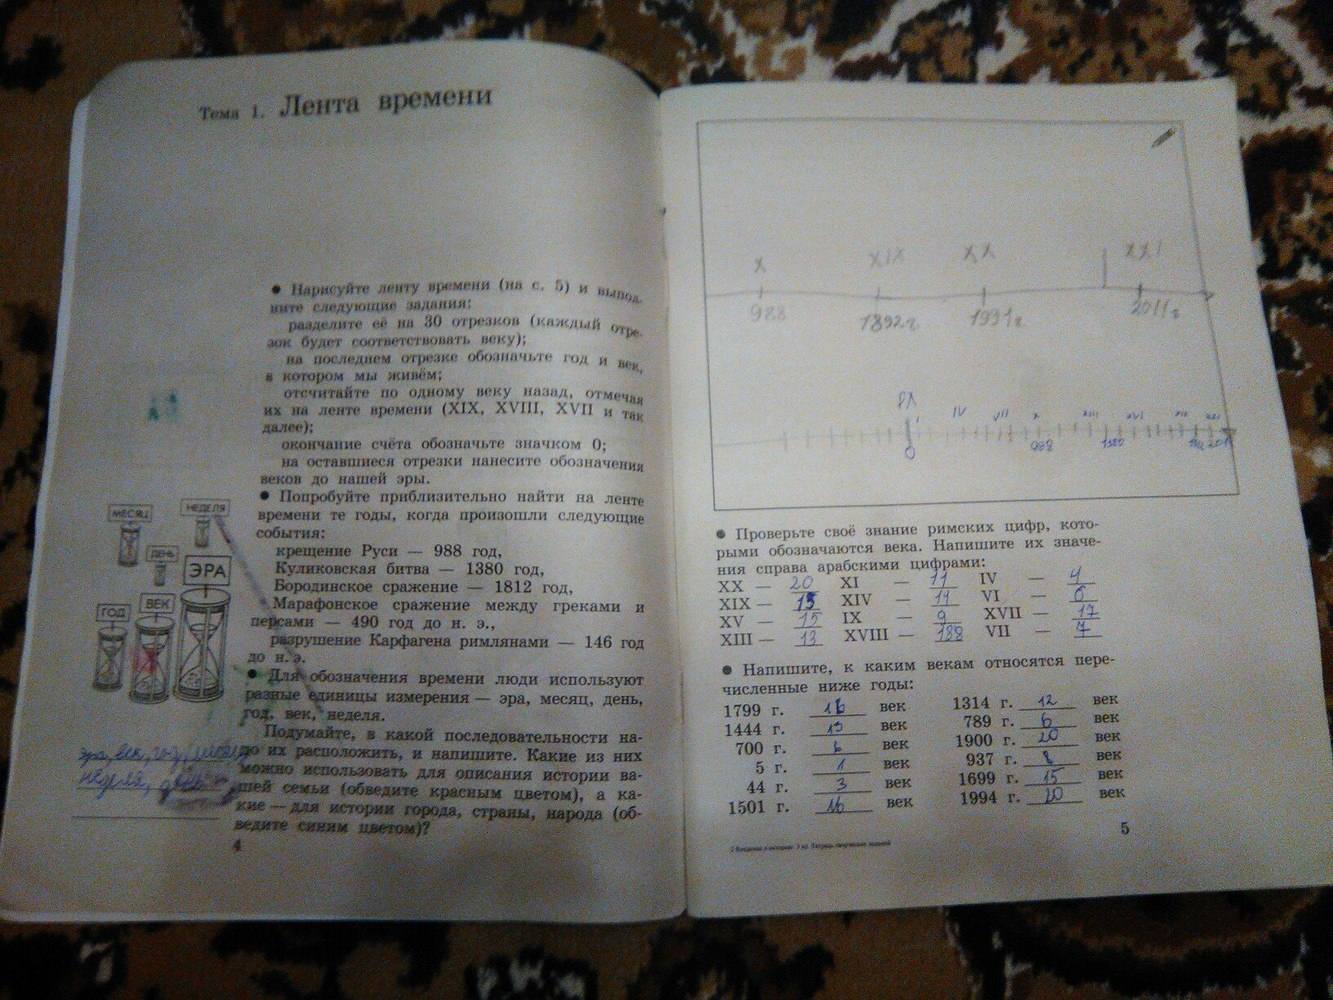 Тема 1. Лента времени
● Нарисуйте ленту времени (на с. 5) и выпол-
ните следующие задания:
разделите её на 30 отрезков (каждый отре-
зок будет соответствовать веку);
на последнем отрезке обозначьте год и век,
в котором мы живём;
отсчитайте по одному веку назад, отмечая
их на ленте времени (XIX, XVIII, XVII и так
далее);
окончание счёта обозначьте значком 0;
на оставшиеся отрезки нанесите обозначения
веков до нашей эры.
● Попробуйте приблизительно найти на ленте
времени те годы, когда произошли следующие
события:
крещение Руси — 988 год,
Куликовская битва — 1380 год,
Бородинское сражение — 1812 год,
Марафонское сражение между греками и
персами — 490 год до н. э.,
разрушение Карфагена римлянами — 146 год
до н. э.
● Для обозначения времени люди используют
разные единицы измерения — эра, месяц, день,
год, век, неделя.
Подумайте, в какой последовательности на-
до их расположить, и напишите. Какие из них
можно использовать для описания истории ва-
шей семьи (обведите красным цветом), а ка-
кие — для истории города, страны, народа (об-
ведите синим цветом)?
МЕСЯЦ
НЕДЕЛЯ
ДЕНЬ
ЭРА
ГОД
ВЕК
эра, век, год, месяц
неделя, день
4
X XIX XX XXI
988 1892г. 1991г. 2011г
РХ
IV VII X XIII XVI XIX XXI
0 988 1380
● Проверьте своё знание римских цифр, кото-
рыми обозначаются века. Напишите их значе-
ния справа арабскими цифрами:
XX — 20 XI — 11 IV — 4
XIX — 19 XIV — 14 VI — 6
XV — 15 IX — 9 XVII — 17
XIII — 13 XVIII — 188 VII — 7
● Напишите, к каким векам относятся пере-
численные ниже годы:
1799 г. 18 век 1314 г. 12 век
1444 г. 15 век 789 г. 6 век
700 г. 6 век 1900 г. 20 век
5 г. 1 век 937 г. 8 век
44 г. 3 век 1699 г. 15 век
1501 г. 16 век 1994 г. 20 век
5